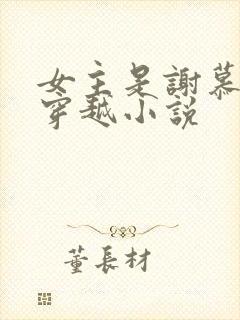 女主是謝慕
穿越小說
董長材